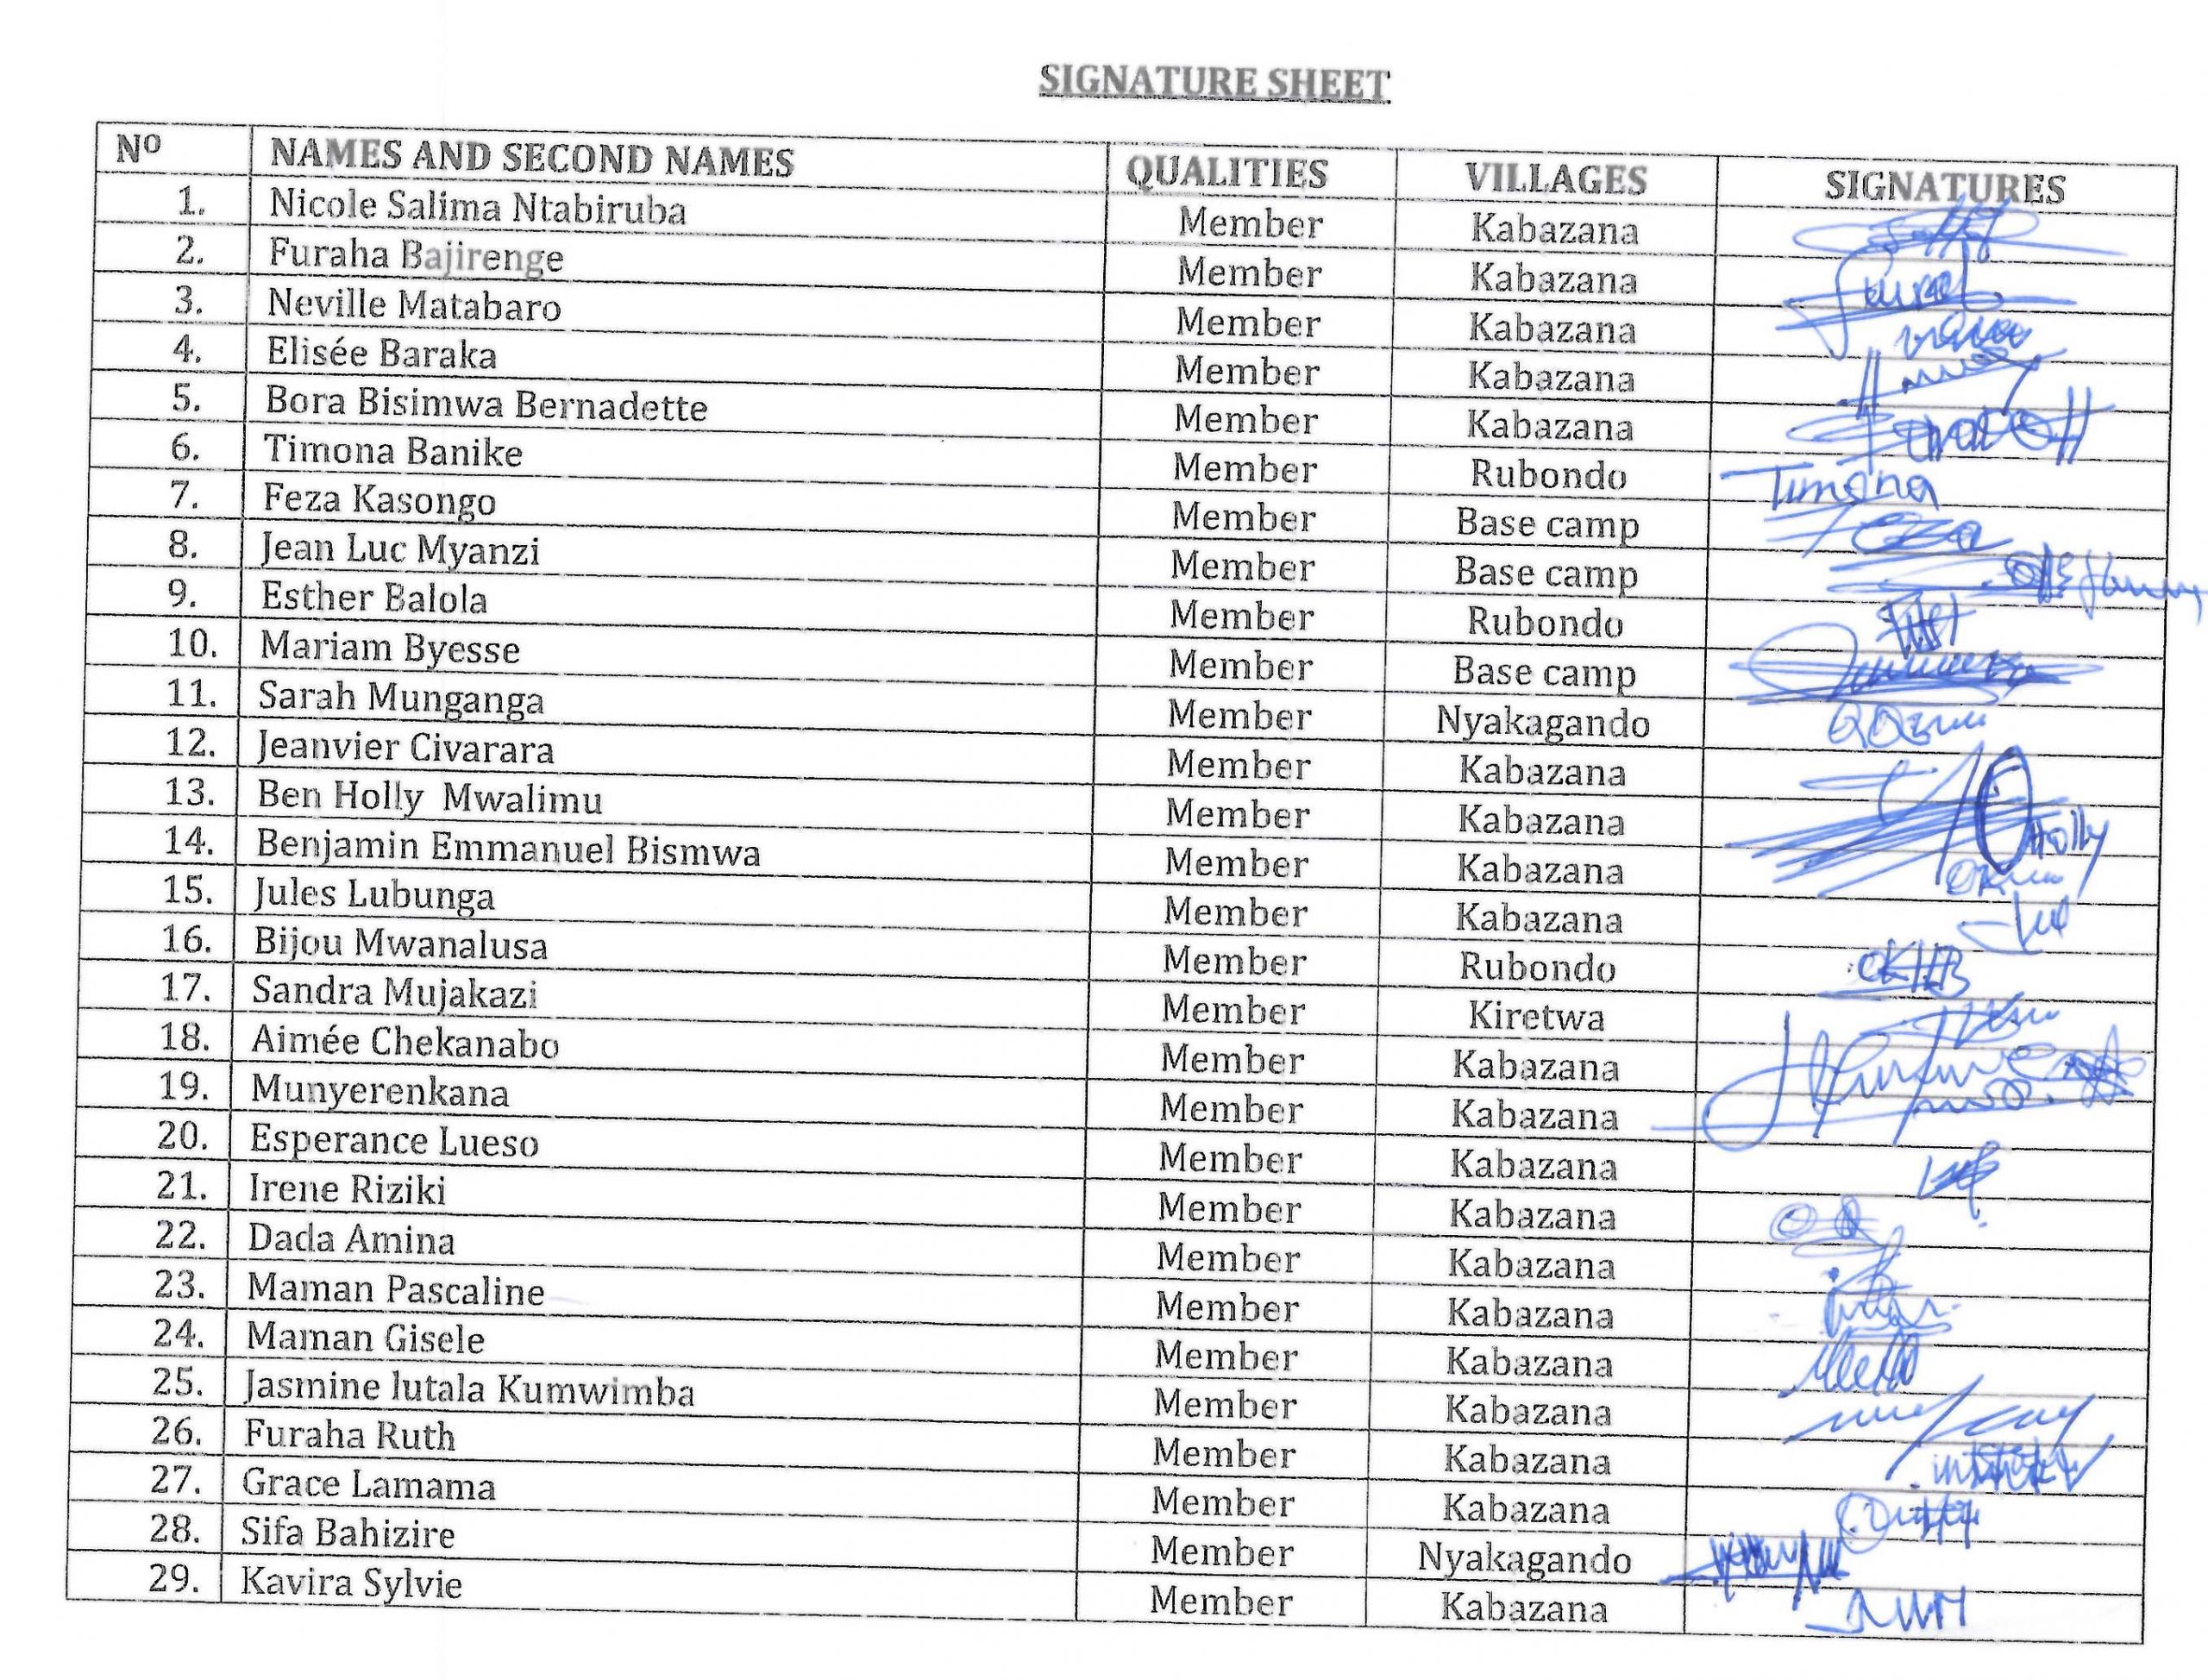 SIGNATURE SHEET
Nº NAMES AND SECOND NAMES QUALITIES VILLAGES SIGNATURES
1. Nicole Salima Ntabiruba Member Kabazana
2. Furaha Bajirenge Member Kabazana
3. Neville Matabaro Member Kabazana
4. Elisée Baraka Member Kabazana
5. Bora Bisimwa Bernadette Member Kabazana
6. Timona Banike Member Rubondo Timona
7. Feza Kasongo Member Base camp Feza
8. Jean Luc Myanzi Member Base camp
9. Esther Balola Member Rubondo
10. Mariam Byesse Member Base camp
11. Sarah Munganga Member Nyakagando
12. Jeanvier Civarara Member Kabazana
13. Ben Holly Mwalimu Member Kabazana Holly
14. Benjamin Emmanuel Bismwa Member Kabazana
15. Jules Lubunga Member Kabazana
16. Bijou Mwanalusa Member Rubondo
17. Sandra Mujakazi Member Kiretwa
18. Aimée Chekanabo Member Kabazana
19. Munyerenkana Member Kabazana
20. Esperance Lueso Member Kabazana
21. Irene Riziki Member Kabazana
22. Dada Amina Member Kabazana
23. Maman Pascaline Member Kabazana
24. Maman Gisele Member Kabazana
25. Jasmine lutala Kumwimba Member Kabazana
26. Furaha Ruth Member Kabazana
27. Grace Lamama Member Kabazana
28. Sifa Bahizire Member Nyakagando
29. Kavira Sylvie Member Kabazana